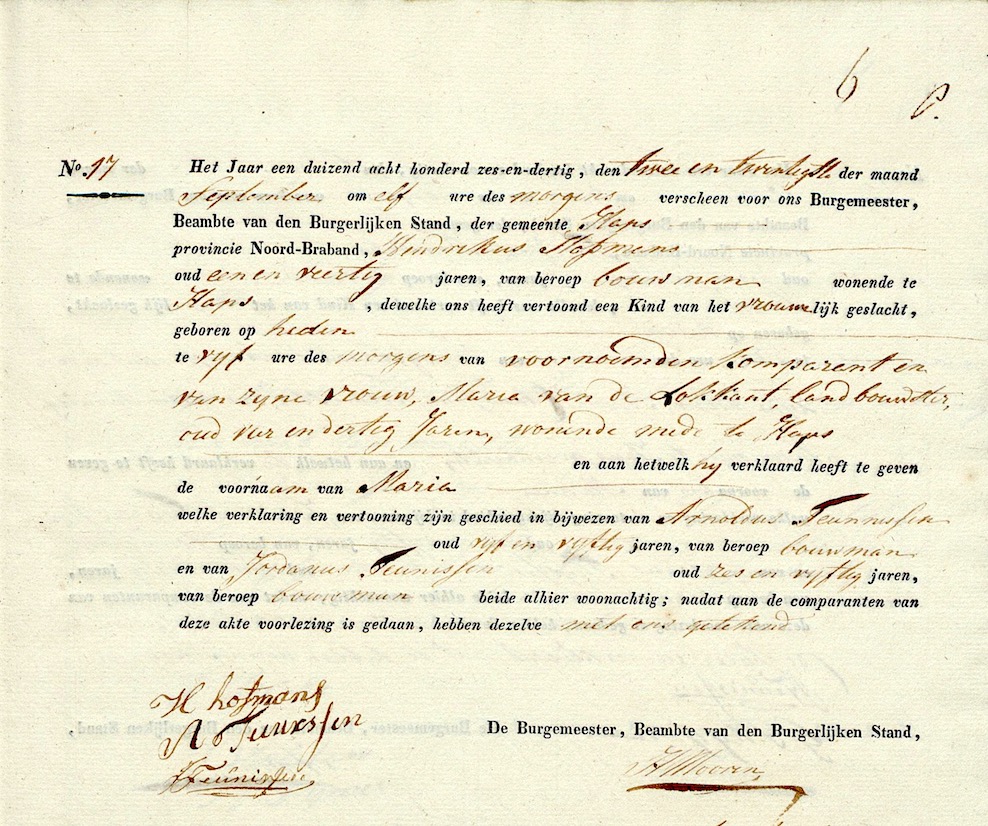 6 P.
No. 17 Het Jaar een duizend acht honderd zes-en-dertig, den twee en twintigste der maand
September om elf ure des morgens verscheen voor ons Burgemeester,
Beambte van den Burgerlijken Stand, der gemeente Haps
provincie Noord-Braband, Hendrikus Hofmens
oud een en veertig jaren, van beroep bouwman wonende te
Haps, dewelke ons heeft vertoond een Kind van het vrouwelijk geslacht,
geboren op heden
te vyf ure des morgens van voornoemden Komparent en
van zyne vrouw, Maria van de Lokkant, landbouwster,
oud vier en dertig Jaren, wonende mede te Haps
en aan hetwelk hy verklaard heeft te geven
de voornaam van Maria
welke verklaring en vertooning zijn geschied in bijwezen van Arnoldus Teunissen
oud vyf en vyftig jaren, van beroep bouwman
en van Jordanus Teunissen oud zes en vyftig jaren,
van beroep bouwman beide alhier woonachtig; nadat aan de comparanten van
deze akte voorlezing is gedaan, hebben dezelve met ons getekend
H hofmans
A Teunissen
J Teunissen
De Burgemeester, Beambte van den Burgerlijken Stand,